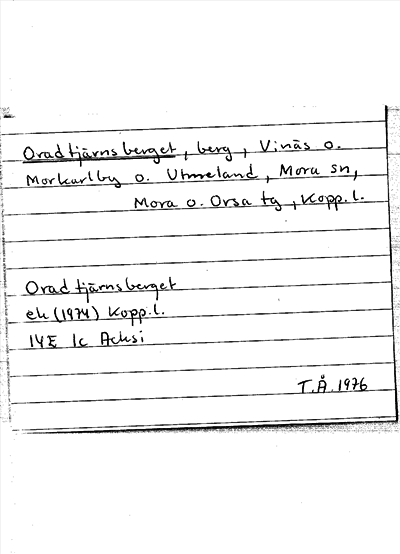 Oradtjärnsberget, berg, Vinäs o.
Morkarlby o. Utmeland, Mora sn,
Mora o. Orsa tg, Kopp. l.
Oradtjärnsberget
ek (1974) Kopp. l.
14E 1c Acksi
T.Å. 1976